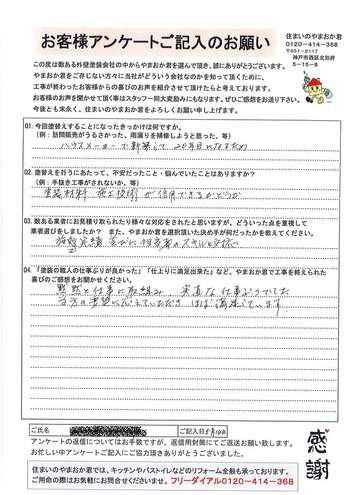 お客様アンケートご記入のお願い
住まいのやまおか君
0120-414-368
〒651-2117
神戸市西区北別府
5-15-8
この度は数ある外壁塗装会社の中からやまおか君を選んで頂き、誠にありがとうございます。
やまおか君をご存じない方々に当社がどういう会社なのかを知って頂くために、
工事が終わったお客様からの喜びのお声を紹介させて頂けたらと考えております。
お客様のお声を聞かせて頂く事はスタッフ一同大変励みにもなります。ぜひご感想をお送り下さい。
今後とも末永く、住まいのやまおか君をよろしくお願い申し上げます。
Q1. 今回塗替えすることになったきっかけは何ですか。
(例:訪問販売がうるさかった、雨漏りを補修しようと思った、等)
ハウスメーカーで新築して 20年目になるため
Q2. 塗替えを行うにあたって、不安だったこと・悩んでいたことはありますか?
(例:手抜き工事がされないか、等)
塗装材料 施工技術 が信用できるかどうか
Q3. 数ある業者にお見積り取られたり様々な対応をされたと思いますが、どういった点を重視して
業者選びをしましたか? また、やまおか君を選択頂いた決め手が何だったかを教えてください。
担当者のスキルと
Q4. 「塗装の職人の仕事ぶりが良かった」「仕上りに満足出来た」など、やまおか君で工事を終えられた
喜びのご感想をお聞かせください。
黙々と仕事に取組み 実直な仕事ぶりでした
当方の要望に応えていただき ほぼ満足しています
ご氏名
ご記入日 5月14日
アンケートの返信についてはお手数ですが、返信用封筒にてご返送お願い致します。
お忙しい中アンケートにご協力頂きありがとうございました。
感謝
住まいのやまおか君では、キッチンやバストイレなどのリフォーム全般も承っております。
ご用命の際はお気軽にお問合せくださいませ。フリーダイアル0120-414-368